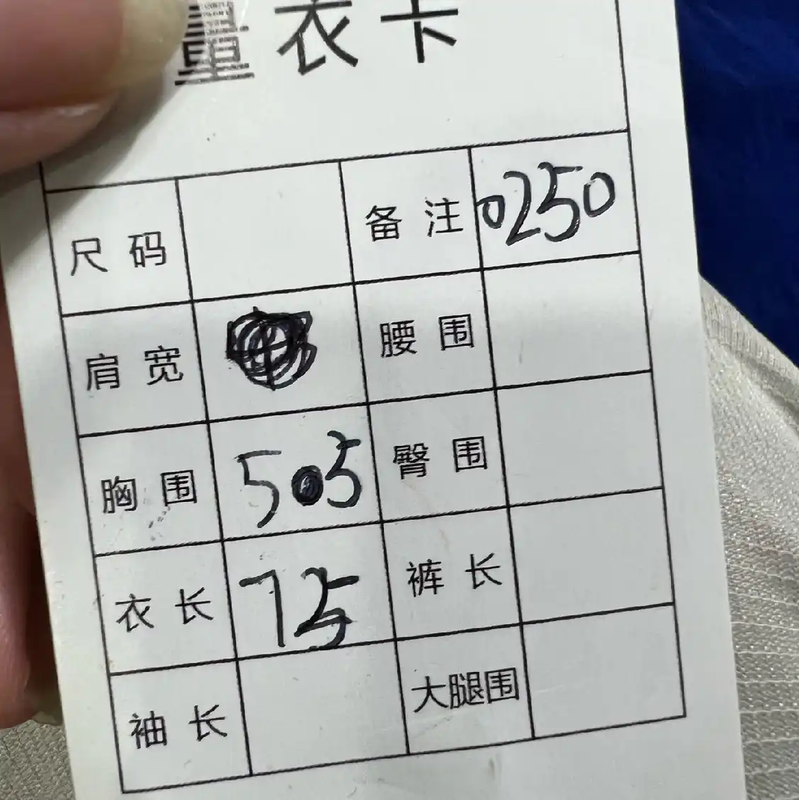 量衣卡
尺码 备注 0250
肩宽 腰围
胸围 505 臀围
衣长 75 裤长
袖长 大腿围